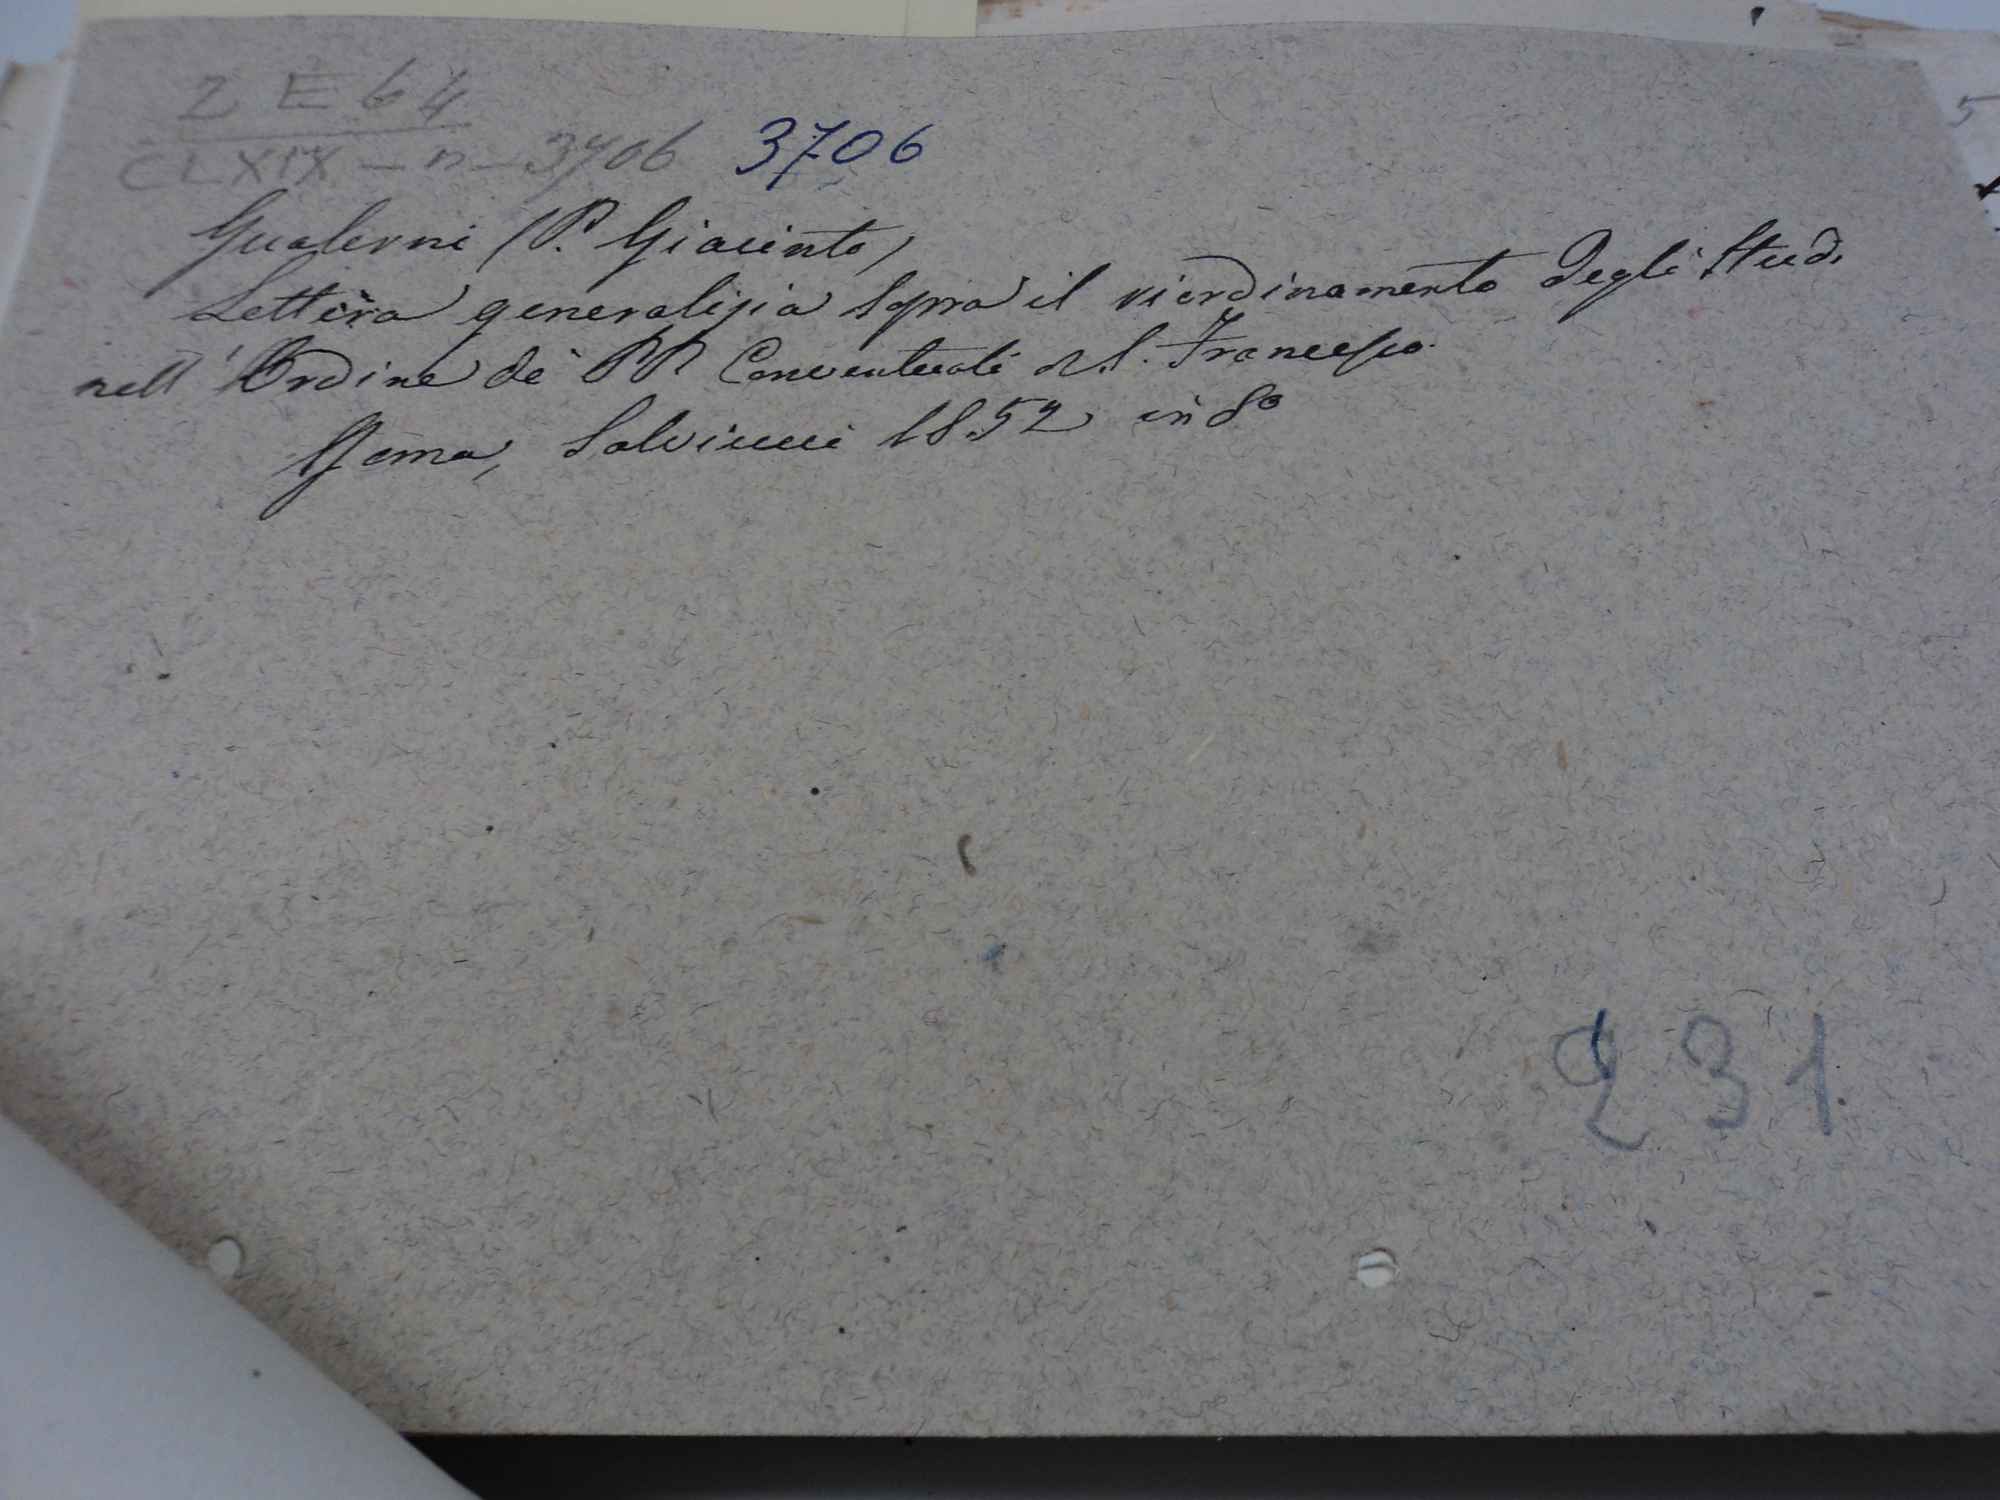 2 E 64
CLXIX - n - 3706 3706
Gualerni (P. Giacinto)
Lettera generalizia sopra il riordinamento degli Studi
nell'Ordine de' PP. Conventuali di S. Francesco.
Roma, Salviucci 1852 in 8º
231